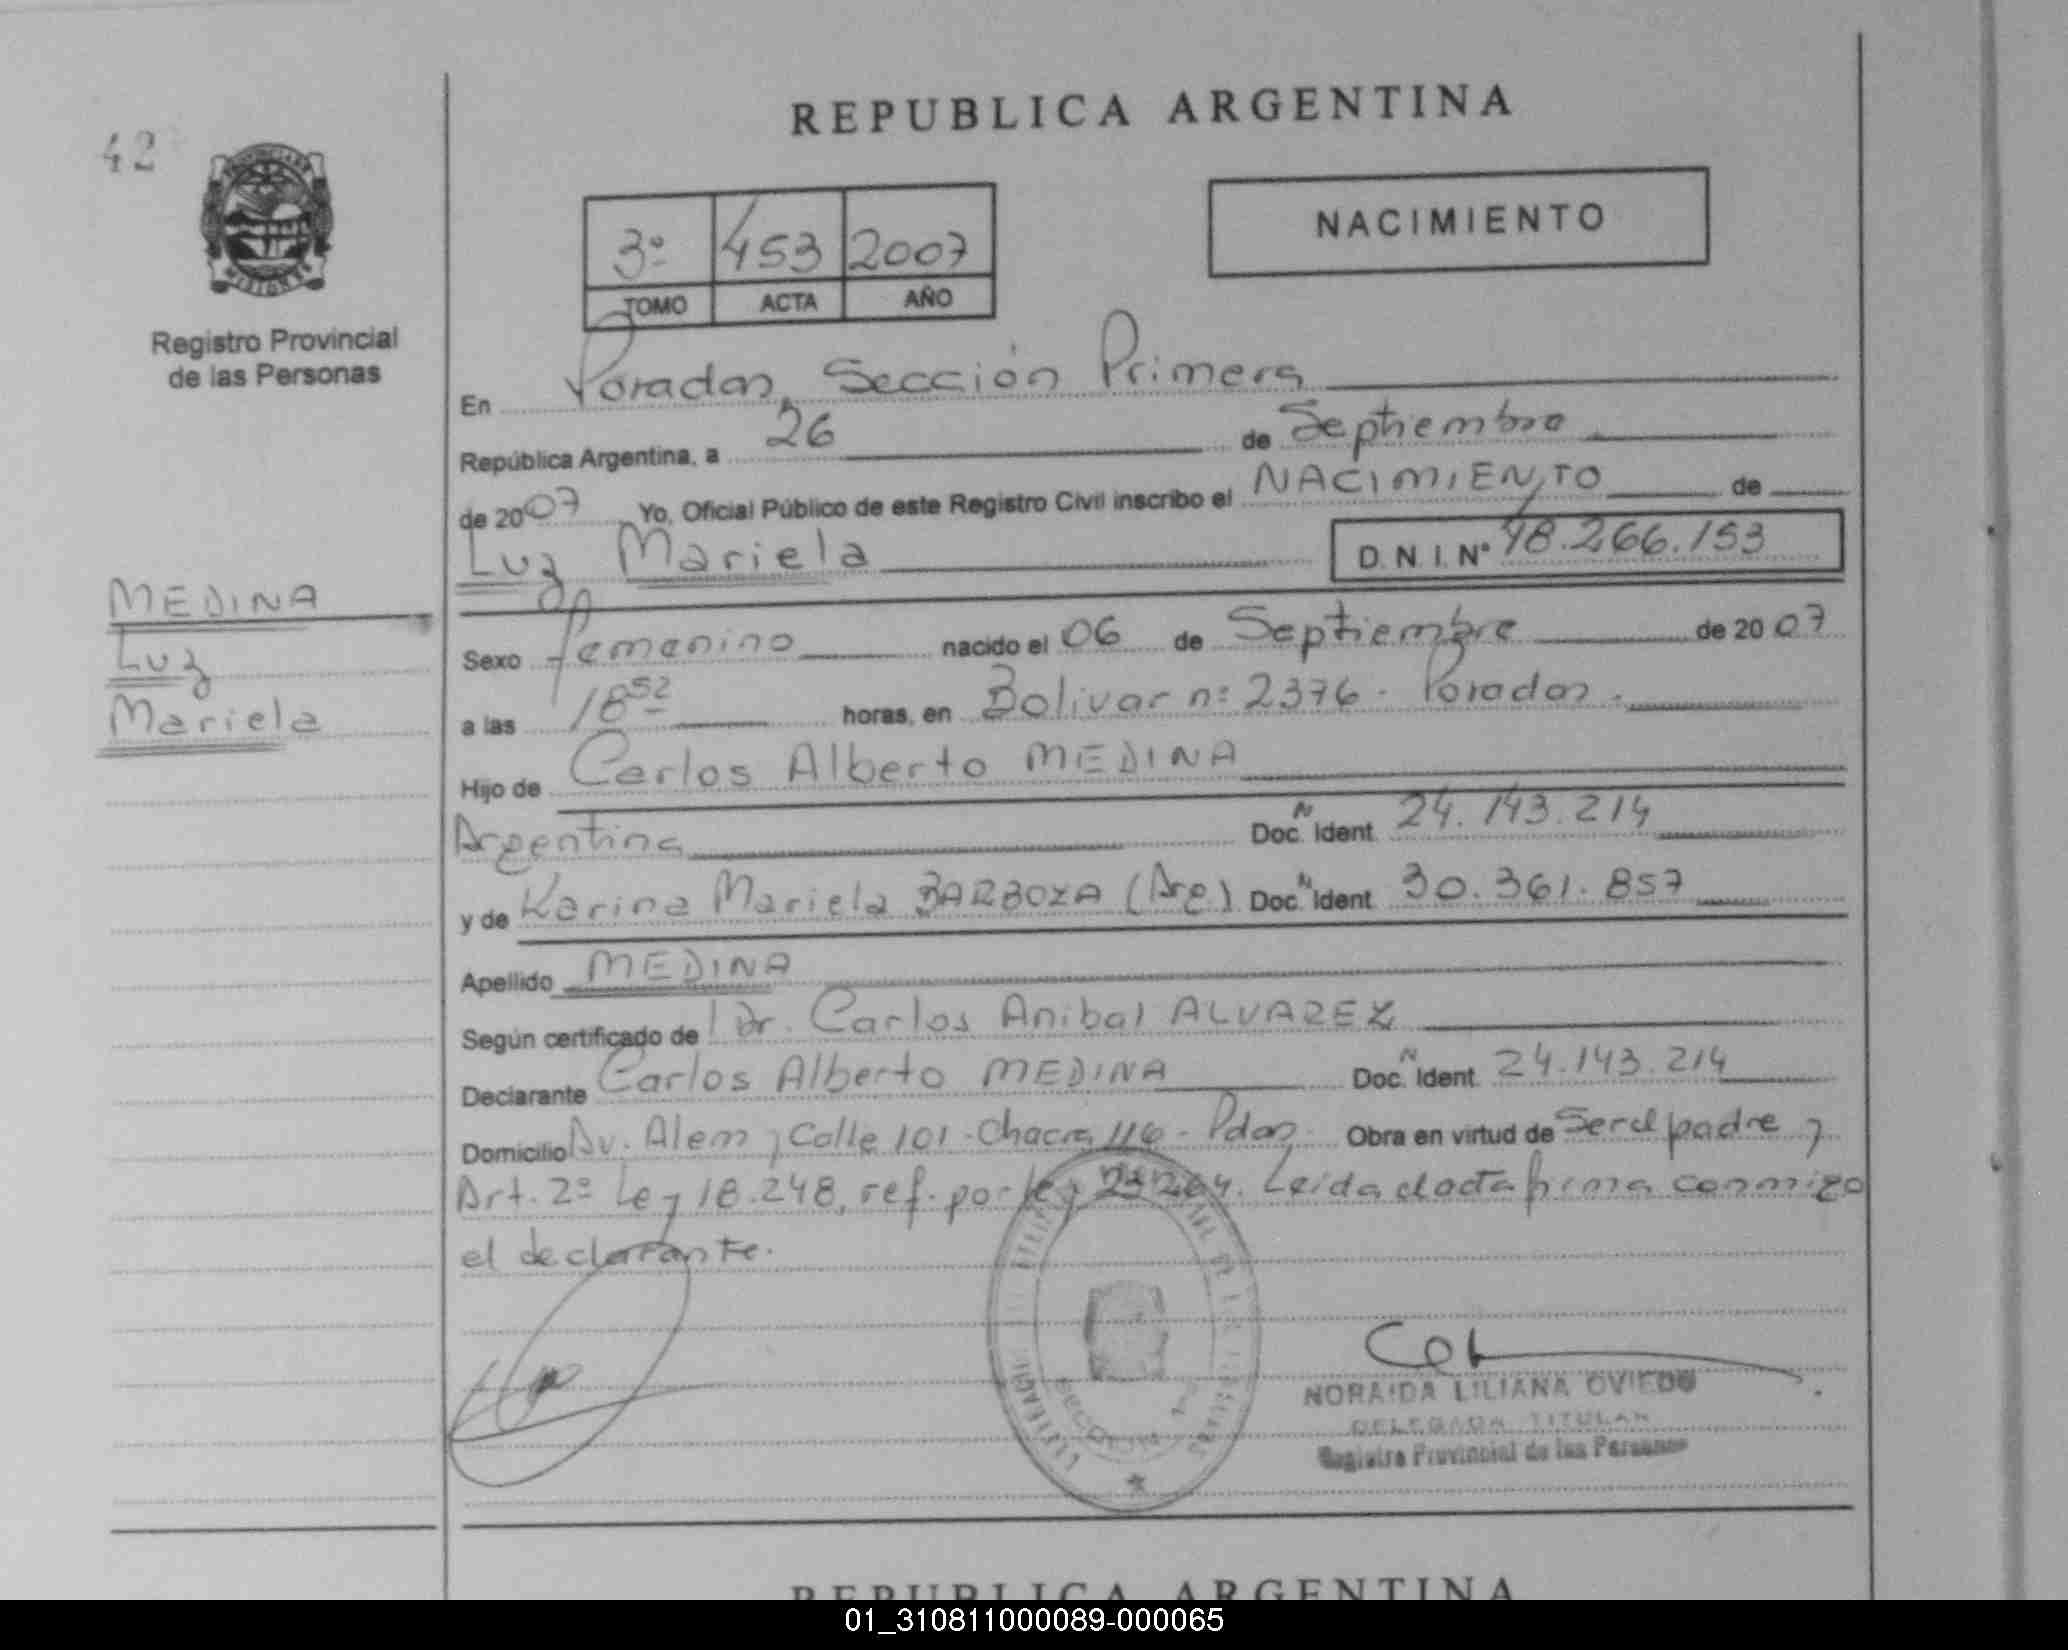 REPUBLICA ARGENTINA
42
NACIMIENTO
3º 453 2007
TOMO ACTA AÑO
PROVINCIA DE
MISIONES
Registro Provincial
de las Personas
En Posadas, Sección Primera
República Argentina, a 26 de Septiembre
de 2007 Yo, Oficial Público de este Registro Civil inscribo el NACIMIENTO de
Luz Mariela D. N. I. Nº 48.266.153
MEDINA
Luz
Mariela
Sexo femenino nacido el 06 de Septiembre de 2007
a las 18 52 horas, en Bolivar nº 2376 - Posadas.
Hijo de Carlos Alberto MEDINA
Argentina Doc. N Ident. 24.143.214
y de Karina Mariela BARBOZA (Arg.) Doc. N Ident. 30.361.857
Apellido MEDINA
Según certificado de Dr. Carlos Anibal ALVAREZ
Declarante Carlos Alberto MEDINA Doc. N Ident. 24.143.214
Domicilio Av. Alem y Calle 101 - Chacra 116 - Pdas. Obra en virtud de Ser el padre y
Art. 2º Ley 18.248, ref. por ley 23.264. Leida el acta firma conmigo
el declarante.
SECCION 1ª
NORAIDA LILIANA OVIEDO
DELEGADA TITULAR
Registro Provincial de las Personas
REPUBLICA ARGENTINA
01_310811000089-000065